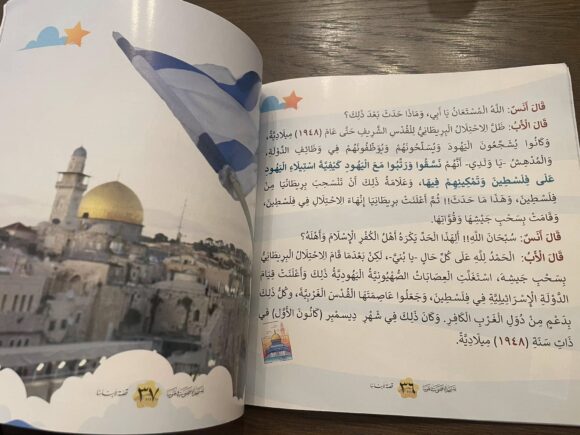 قَالَ أَنَسٌ: اللَّهُ الْمُسْتَعَانُ يَا أَبِي، وَمَاذَا حَدَثَ بَعْدَ ذَلِكَ؟
قَالَ الْأَبُ: ظَلَّ الِاحْتِلَالُ الْبَرِيطَانِيُّ لِلْقُدْسِ الشَّرِيفِ حَتَّى عَامَ (١٩٤٨) مِيلَادِيَّةً،
وَكَانُوا يُشَجِّعُونَ الْيَهُودَ وَيُسَلِّحُونَهُمْ وَيُوَظِّفُونَهُمْ فِي وَظَائِفِ الدَّوْلَةِ،
وَالْمُدْهِشُ -يَا وَلَدِي- أَنَّهُمْ نَسَّقُوا وَرَتَّبُوا مَعَ الْيَهُودِ كَيْفِيَّةَ اسْتِيلَاءِ الْيَهُودِ
عَلَى فِلَسْطِينَ وَتَمْكِينِهِمْ فِيهَا، وَعَلَامَةُ ذَلِكَ أَنْ تَنْسَحِبَ بَرِيطَانْيَا مِنْ
فِلَسْطِينَ، وَهَذَا مَا حَدَثَ!! ثُمَّ أَعْلَنَتْ بَرِيطَانْيَا إِنْهَاءَ الِاحْتِلَالِ فِي فِلَسْطِينَ،
وَقَامَتْ بِسَحْبِ جَيْشِهَا وَقُوَّاتِهَا.
قَالَ أَنَسٌ: سُبْحَانَ اللَّهِ!! أَلِهَذَا الْحَدِّ يَكْرَهُ أَهْلُ الْكُفْرِ الْإِسْلَامَ وَأَهْلَهُ؟
قَالَ الْأَبُ: الْحَمْدُ لِلَّهِ عَلَى كُلِّ حَالٍ -يَا بُنَيَّ-، لَكِنْ بَعْدَمَا قَامَ الِاحْتِلَالُ الْبَرِيطَانِيُّ
بِسَحْبِ جَيْشِهِ، اسْتَغَلَّتِ الْعِصَابَاتُ الصُّهْيُونِيَّةُ الْيَهُودِيَّةُ ذَلِكَ وَأَعْلَنَتْ قِيَامَ
الدَّوْلَةِ الْإِسْرَائِيلِيَّةِ فِي فِلَسْطِينَ، وَجَعَلُوا عَاصِمَتَهَا الْقُدْسَ الْغَرْبِيَّةَ، وَكُلُّ ذَلِكَ
بِدَعْمٍ مِنْ دُوَلِ الْغَرْبِ الْكَافِرِ. وَكَانَ ذَلِكَ فِي شَهْرِ دِيسَمْبِرِ (كَانُونَ الْأَوَّلِ) فِي
ذَاتِ سَنَةِ (١٩٤٨) مِيلَادِيَّةً.
٣٦
٣٧